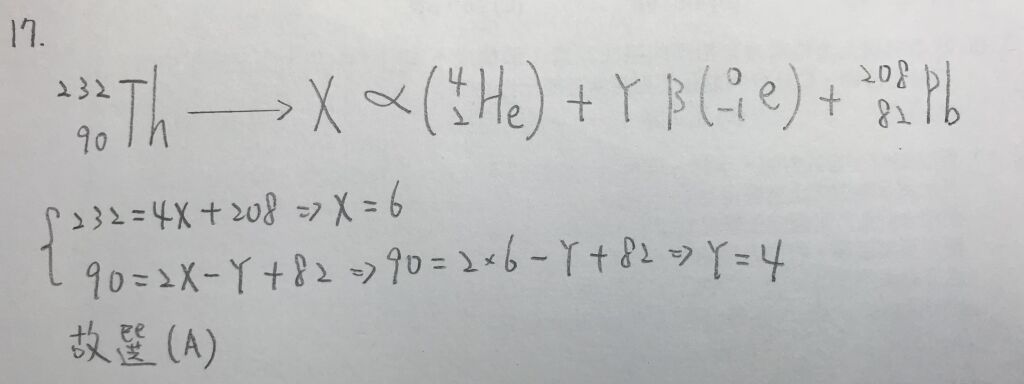 17.
²³²₉₀Th → X α(⁴₂He) + Y β(⁰₋₁e) + ²⁰⁸₈₂Pb
232=4X+208 ⇒ X=6
90=2X-Y+82 ⇒ 90=2×6-Y+82 ⇒ Y=4
故選(A)